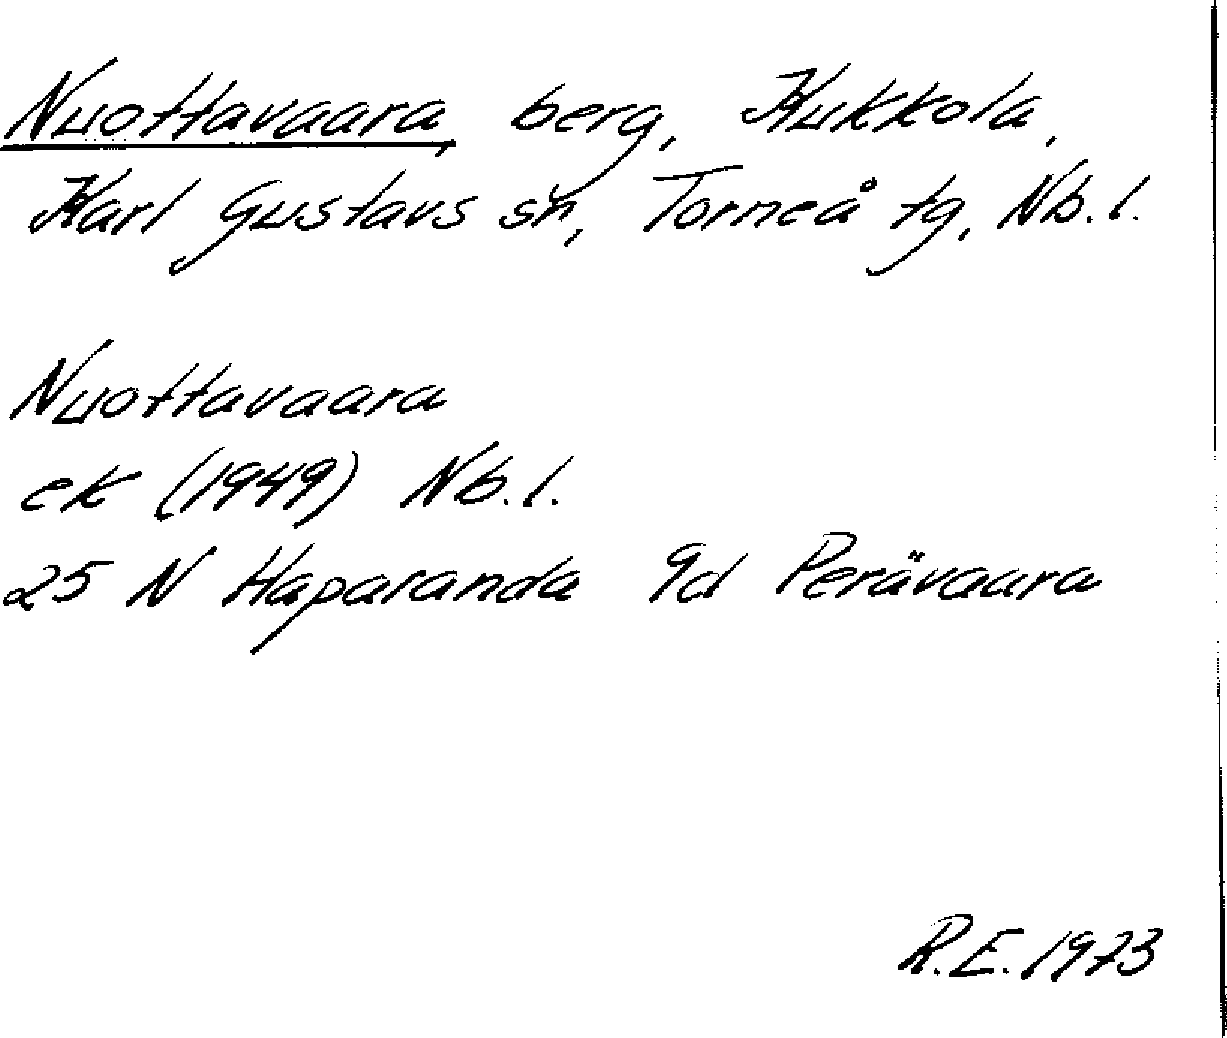 Nuottavaara, berg, Kukkola,
Karl Gustavs sn, Torneå tg, Nb. l.
Nuottavaara
ek (1949) Nb. l.
25 N Haparanda 9d Perävaara
R.E. 1973